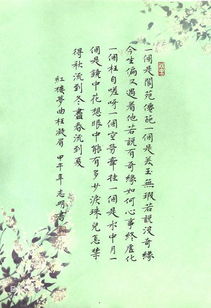 一個是閬苑僊葩一個是美玉無瑕若說沒奇緣
今生偏又遇着他若說有奇緣如何心事終虛化
一個枉自嗟呀一個空勞牽挂一個是水中月一
個是鏡中花想眼中能有多少淚珠兒怎禁
得秋流到冬盡春流到夏
紅樓夢曲枉凝眉 甲午年志明書